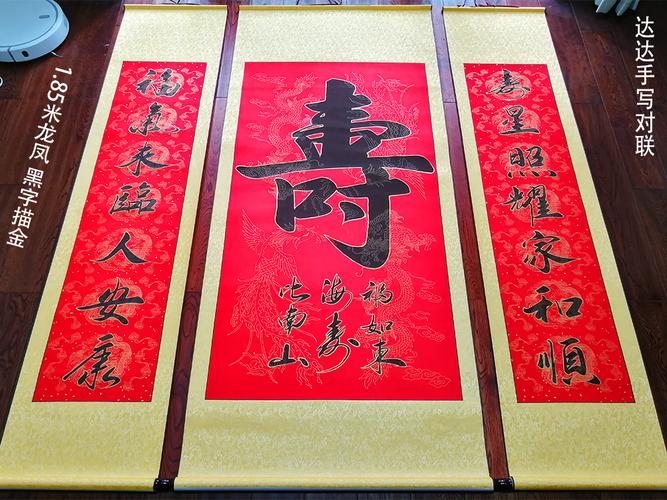 达达手写对联
寿星照耀家和順
壽
福如東
海寿
比南山
福氣来臨人安康
1.85米龙凤 黑字描金